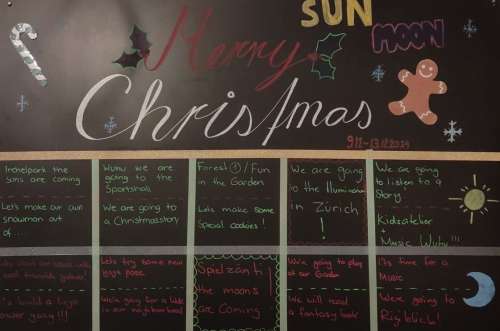 SUN
MOON
Merry
Christmas
9.12-13.12.2024
Irchelpark the
suns are coming
Wuhu we are
going to the
Sportshall
Forest ① / Fun
in the Garden
We are going
to the Illumination
in Zürich
!
We are going
to listen to a
Story
Let's make our own
snowman out
of...
We are going to
a Christmasstory
Lets make some
special cookies!
Kidsatelier
+
Music Wuhu!!!
Let's try some new
yoga pose
Spielzanti
the moons
are coming
We're going to play
at our Garden
It's time for a
Music
We're going for a walk
in our neighborhood
We will read
a fantasy book
We're going to